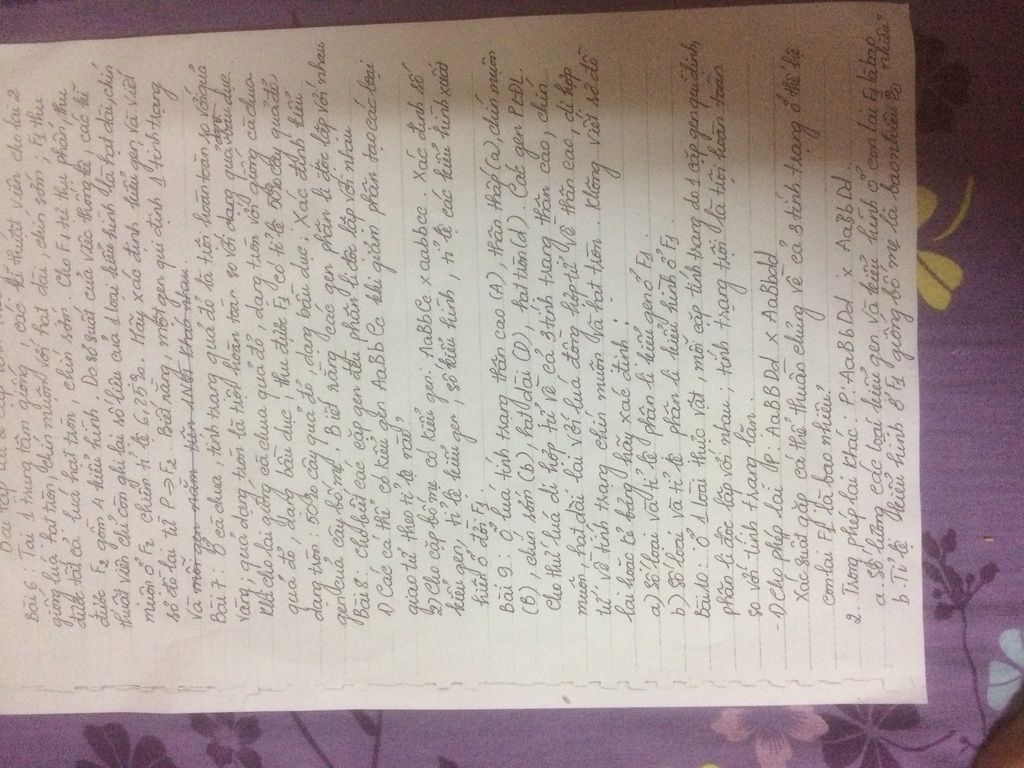 Bài tập lai 2 cặp
Bài 6: Tại 1 trung tâm giống, các kĩ thuật viên cho lai 2
giống lúa hạt tròn, chín muộn với hạt dài, chín sớm, F1 thu
được tất cả lúa hạt tròn, chín sớm. Cho F1 tự thụ phấn, thu
được F2 gồm 4 kiểu hình. Do sơ suất của việc thống kê, các kĩ
thuật viên chỉ còn ghi lại số liệu của 1 loại kiểu hình là hạt dài, chín
muộn ở F2 chiếm tỉ lệ 6,25%. Hãy xác định kiểu gen và viết
sơ đồ lai từ P → F2. Biết rằng, một gen qui định 1 tính trạng
và mỗi gen nằm trên 1 NST khác nhau.
Bài 7: Ở cà chua, tính trạng quả đỏ là trội hoàn toàn so với quả
vàng; quả dạng tròn là trội hoàn toàn so với dạng quả bầu dục.
Khi cho lai giống cà chua quả đỏ, dạng tròn với giống cà chua
quả đỏ, dạng bầu dục, thu được F1 có tỉ lệ 50% cây quả đỏ
dạng tròn: 50% cây quả đỏ, dạng bầu dục. Xác định kiểu
gen của cây bố mẹ. Biết rằng các gen phân li độc lập với nhau
Bài 8: Cho biết các cặp gen đều phân li độc lập với nhau
1) Các cá thể có kiểu gen AaBbCc khi giảm phân tạo các loại
giao tử theo tỉ lệ nào?
2) Cho cặp bố mẹ có kiểu gen: AaBbCc x aabbcc. Xác định số
kiểu gen, tỉ lệ kiểu gen, số kiểu hình, tỉ lệ các kiểu hình xuất
hiện ở đời F1
Bài 9: Ở lúa tính trạng thân cao (A), thân thấp (a), chín muộn
(B), chín sớm (b), hạt dài (D), hạt tròn (d). Các gen PLĐL.
Cho thứ lúa dị hợp tử về cả 3 tính trạng thân cao, chín
muộn, hạt dài lai với lúa đồng hợp tử về thân cao, dị hợp
tử về tính trạng chín muộn và hạt tròn. Không viết sơ đồ
lai hoặc kẻ bảng hãy xác định:
a) Số loại và tỉ lệ phân li kiểu gen ở F1.
b) Số loại và tỉ lệ phân li kiểu hình ở F1
Bài 10: Ở 1 loài thực vật, mỗi cặp tính trạng do 1 cặp gen qui định,
phân li độc lập với nhau; tính trạng trội là trội hoàn toàn
so với tính trạng lặn.
1) Cho phép lai P: AaBBDd x AaBbdd
Xác suất gặp cá thể thuần chủng về cả 3 tính trạng ở thế hệ
con lai F1 là bao nhiêu.
2. Trong phép lai khác: P: AaBbDd x AaBbDd
a. Số lượng các loại kiểu gen và kiểu hình ở con lai F1 là
b. Tỉ lệ kiểu hình ở F1 giống bố mẹ là bao nhiêu